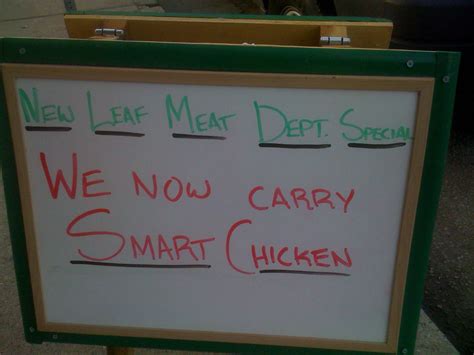 New Leaf Meat Dept. Special
We now carry
Smart Chicken